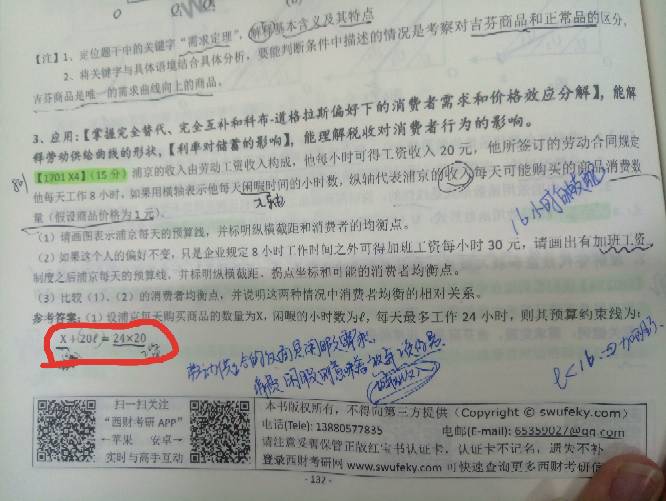 【注】1、定位题干中的关键字“需求定理”，解释基本含义及其特点
2、将关键字与具体语境结合具体分析，要能判断条件中描述的情况是考察对吉芬商品和正常品的区分，
吉芬商品是唯一的需求曲线向上的商品。
3、应用：【掌握完全替代、完全互补和科布-道格拉斯偏好下的消费者需求和价格效应分解】，能解
释劳动供给曲线的形状，【利率对储蓄的影响】，能理解税收对消费者行为的影响。
【1701 X4】（15 分）浦京的收入由劳动工资收入构成，他每小时可得工资收入 20 元，他所签订的劳动合同规定
他每天工作 8 小时，如果用横轴表示他每天闲暇时间的小时数，纵轴代表浦京的收入每天可能购买的商品消费数
量（假设商品价格为 1 元）。
16小时
（1）请画图表示浦京每天的预算线，并标明纵横截距和消费者的均衡点。
（2）如果这个人的偏好不变，只是企业规定 8 小时工作时间之外可得加班工资每小时 30 元，请画出有加班工资
制度之后浦京每天的预算线，并标明纵横截距、拐点坐标和可能的消费者均衡点。
（3）比较（1）、（2）的消费者均衡点，并说明这两种情况中消费者均衡的相对关系。
参考答案：（1）设浦京每天购买商品的数量为X，闲暇的小时数为ℓ，每天最多工作 24 小时，则其预算约束线为：
X+20ℓ = 24×20
劳动供给的反面是闲暇需求
ℓ<16
扫一扫关注
“西财考研 APP”
←苹果 安卓→
实时与高手互动
本书版权所有，不得向第三方提供（Copyright © swufeky.com）
电话(Tele): 13880577835 电邮(E-mail): 65359027@qq.com
请注意妥善保管正版红宝书认证卡，认证卡不记名，遗失不补
登录西财考研网 www.swufeky.com 可快速查询更多西财考研信
- 132 -